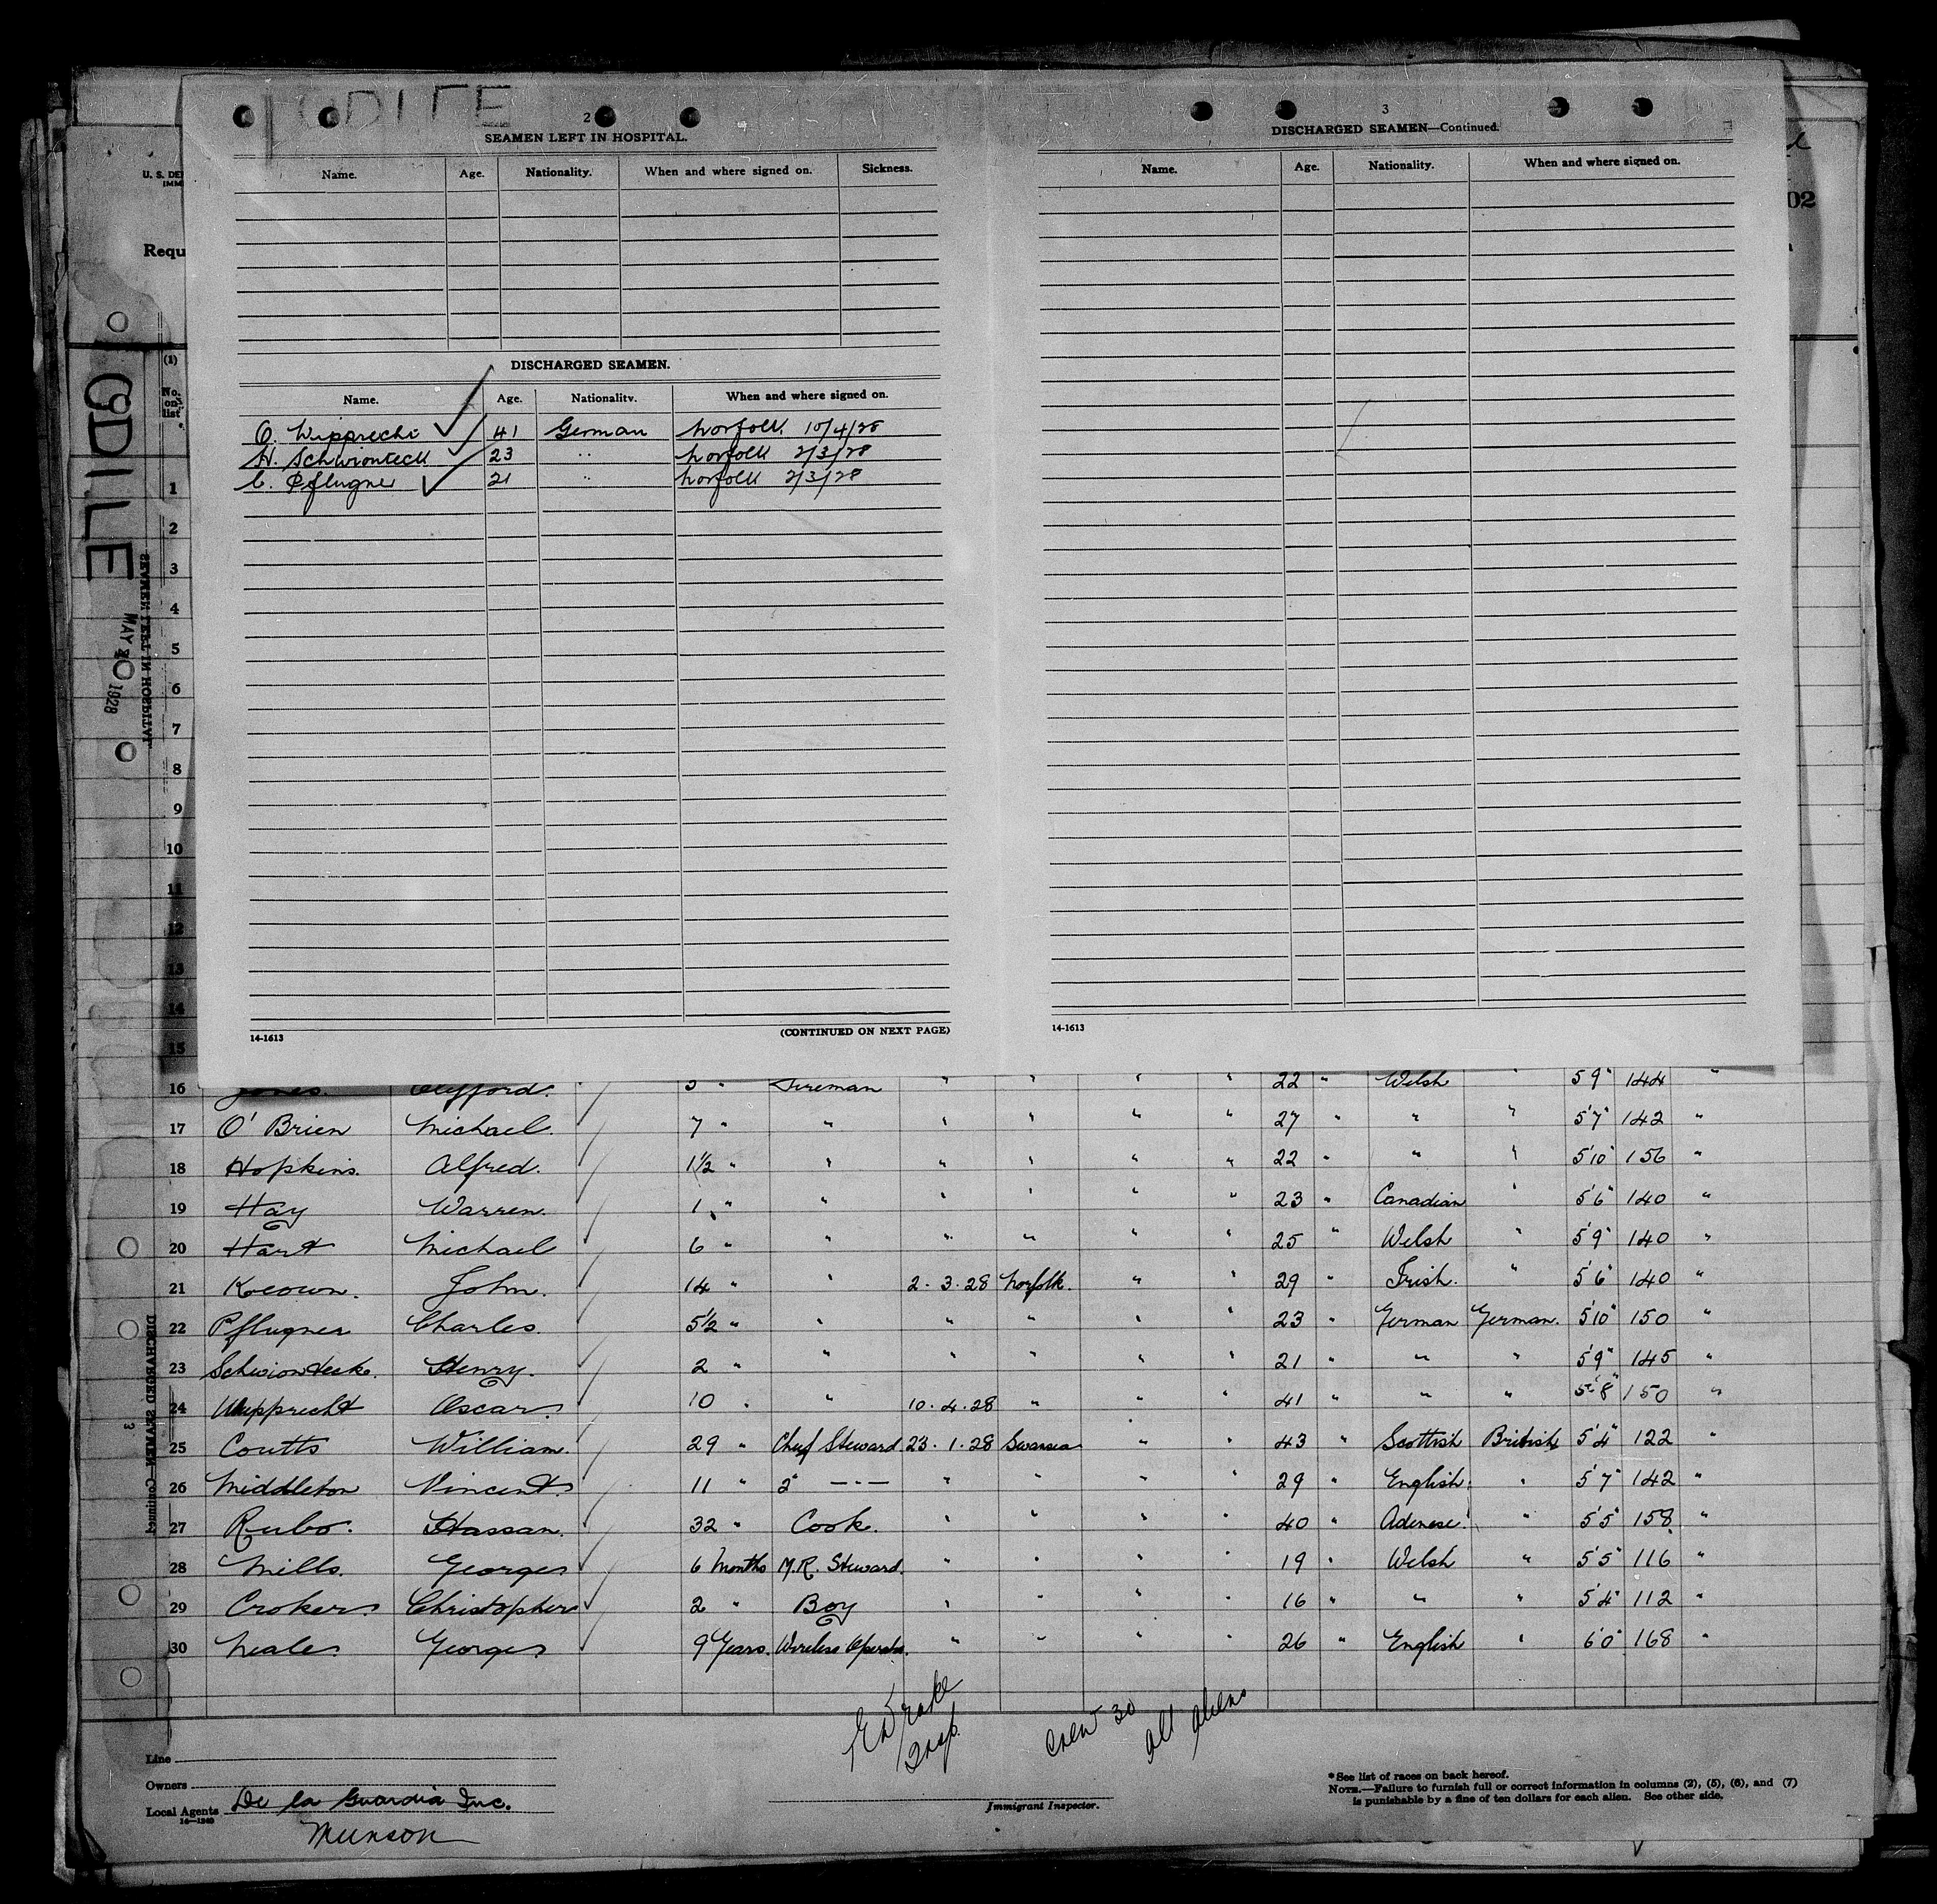 ODILE
2
SEAMEN LEFT IN HOSPITAL.
Name. Age. Nationality. When and where signed on. Sickness.
DISCHARGED SEAMEN.
Name. Age. Nationality. When and where signed on.
O. Wipprecht 41 German Norfolk 10/4/28
H. Schwionteck 23 " Norfolk 2/3/28
C. Pflugner 21 " Norfolk 2/3/28
14-1613
(CONTINUED ON NEXT PAGE)
3
DISCHARGED SEAMEN—Continued.
Name. Age. Nationality. When and where signed on.
14-1613
U. S. DE
IMM
Requ
02
(1)
No. on list
ODILE
MAY 1928
SEAMEN LEFT IN HOSPITAL
DISCHARGED SEAMEN—Continued
3
1
2
3
4
5
6
7
8
9
10
11
12
13
14
15
16 Jones. Clifford. 5 " Fireman " " " " 22 " Welsh " 5'9" 144 "
17 O'Brien Michael. 7 " " " " " " 27 " " " 5'7" 142 "
18 Hopkins. Alfred. 1½ " " " " " " 22 " " " 5'10" 156 "
19 Hay Warren. 1 " " " " " " 23 " Canadian " 5'6" 140 "
20 Hart Michael 6 " " " " " " 25 " Welsh " 5'9" 140 "
21 Keown. John. 14 " " 2.3.28 Norfolk. " " 29 " Irish. " 5'6" 140 "
22 Pflugner Charles. 5½ " " " " " " 23 " German German. 5'10" 150 "
23 Schwionteck. Henry. 2 " " " " " " 21 " " " 5'9" 145 "
24 Wipprecht Oscar. 10 " " 10.4.28 " " " 41 " " " 5'8" 150 "
25 Coutts William. 29 " Chief Steward 23.1.28 Swansea " " 43 " Scottish British 5'4" 122 "
26 Middleton Vincent. 11 " 2" — — — " " " " 29 " English. " 5'7" 142 "
27 Rubo. Hassan. 32 " Cook. " " " " 40 " Adenese. " 5'5" 158 "
28 Mills. George 6 Months M.R. Steward. " " " " 19 " Welsh " 5'5" 116 "
29 Croker Christopher 2 " Boy " " " " 16 " " " 5'4" 112 "
30 Neale George 9 Years. Wireless Operator. " " " " 26 " English " 6'0" 168 "
E Drake
Insp.
Crew 30
all aliens
Line
Owners
Local Agents De la Guardia Inc.
Munson
Immigrant Inspector.
*See list of races on back hereof.
NOTE.—Failure to furnish full or correct information in columns (2), (5), (6), and (7)
is punishable by a fine of ten dollars for each alien. See other side.